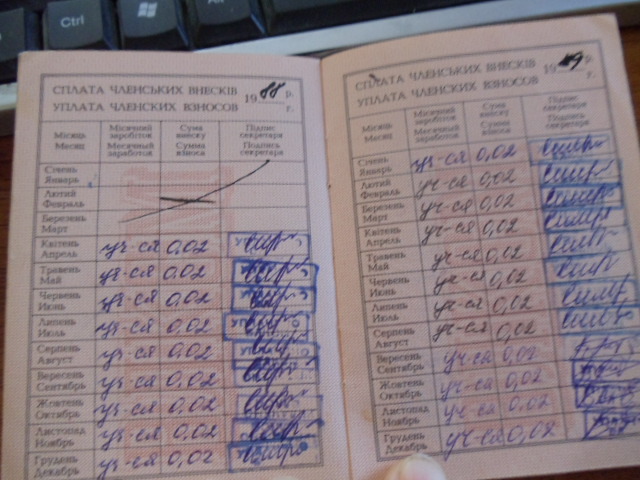 Ctrl
Alt
СПЛАТА ЧЛЕНСЬКИХ ВНЕСКІВ
УПЛАТА ЧЛЕНСКИХ ВЗНОСОВ
1988 р.
г.
Місяць
Месяц
Місячний заробіток
Месячный заработок
Сума внеску
Сумма взноса
Підпис секретаря
Подпись секретаря
Січень
Январь
Лютий
Февраль
Березень
Март
Квітень
Апрель уч-ся 0,02
Травень
Май уч-ся 0,02
Червень
Июнь уч-ся 0,02
Липень
Июль уч-ся 0,02
Серпень
Август уч-ся 0,02
Вересень
Сентябрь уч-ся 0,02
Жовтень
Октябрь уч-ся 0,02
Листопад
Ноябрь уч-ся 0,02
Грудень
Декабрь уч-ся 0,02
СПЛАТА ЧЛЕНСЬКИХ ВНЕСКІВ
УПЛАТА ЧЛЕНСКИХ ВЗНОСОВ
1989 р.
г.
Місяць
Месяц
Місячний заробіток
Месячный заработок
Сума внеску
Сумма взноса
Підпис секретаря
Подпись секретаря
Січень
Январь уч-ся 0,02
Лютий
Февраль уч-ся 0,02
Березень
Март уч-ся 0,02
Квітень
Апрель уч-ся 0,02
Травень
Май уч-ся 0,02
Червень
Июнь уч-ся 0,02
Липень
Июль уч-ся 0,02
Серпень
Август уч-ся 0,02
Вересень
Сентябрь уч-ся 0,02
Жовтень
Октябрь уч-ся 0,02
Листопад
Ноябрь уч-ся 0,02
Грудень
Декабрь уч-ся 0,02